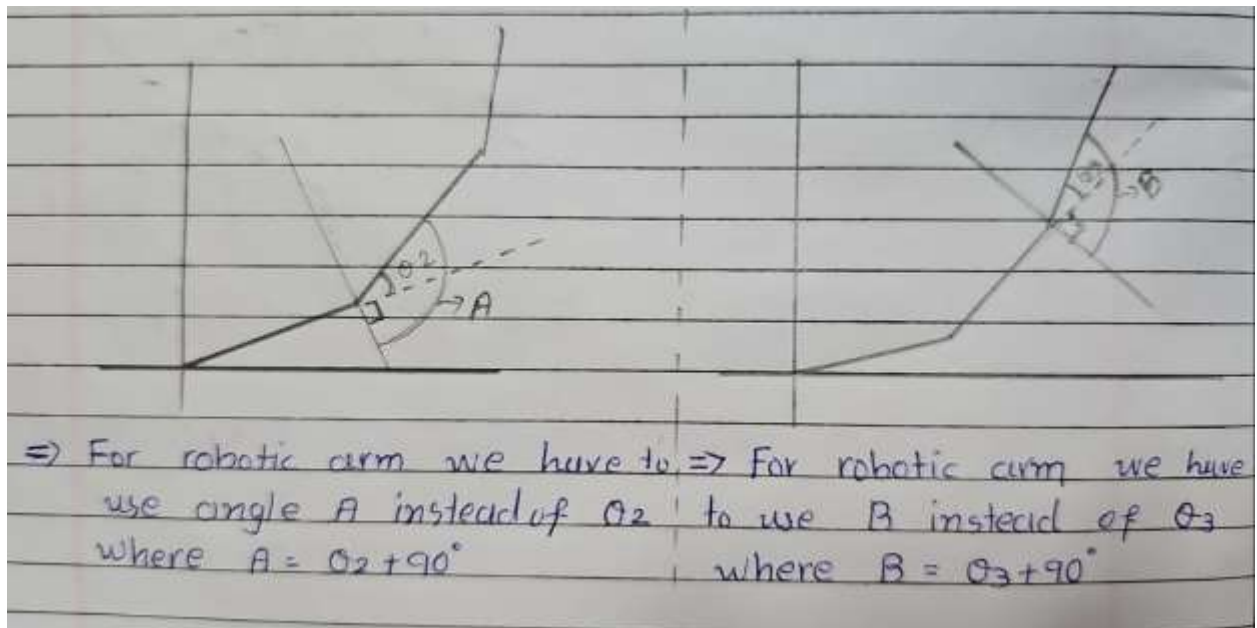 θ2
→ A
θ3
→ B
⇒ For robotic arm we have to
use angle A instead of θ2
where A = θ2 + 90°
⇒ For robotic arm we have
to use B instead of θ3
where B = θ3 + 90°